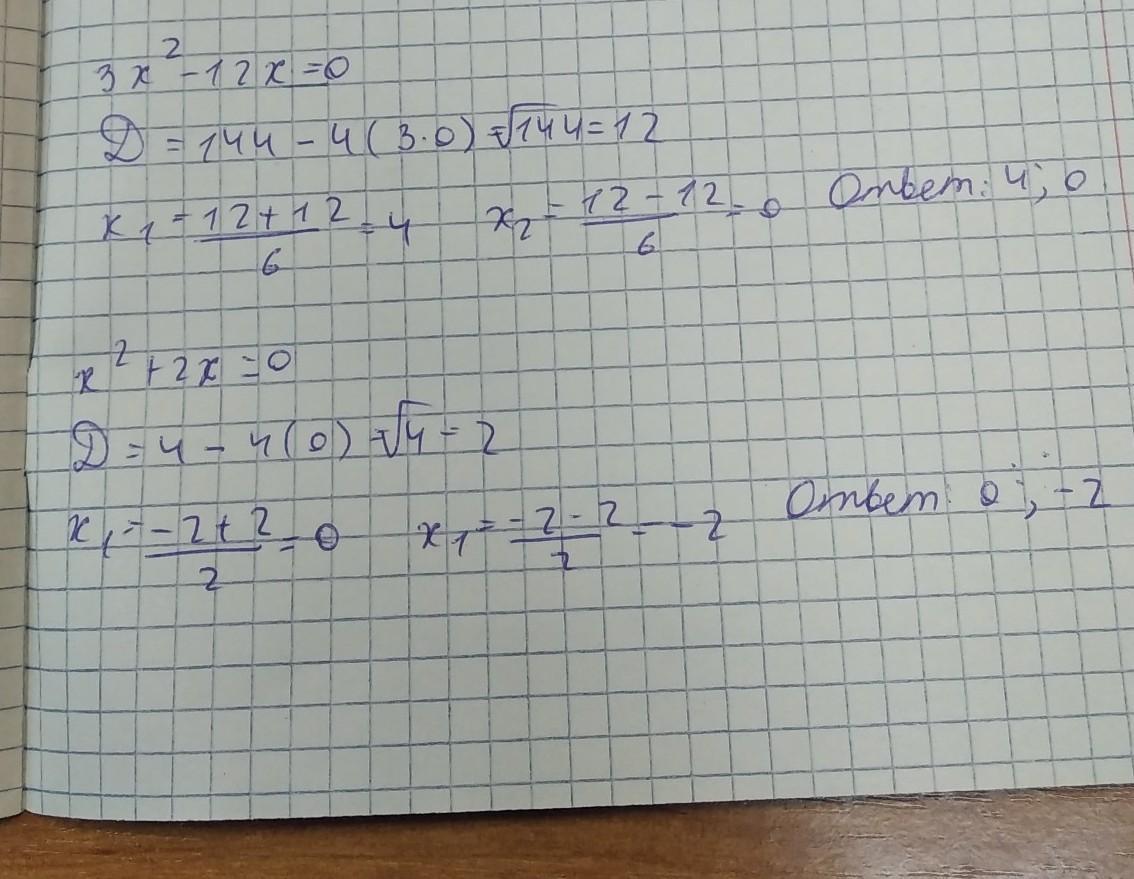 3x²-12x=0
D=144-4(3·0)=√144=12
x₁=(12+12)/6=4 x₂=(12-12)/6=0 Ответ: 4; 0
x²+2x=0
D=4-4(0)=√4=2
x₁=(-2+2)/2=0 x₁=(-2-2)/2=-2 Ответ: 0; -2